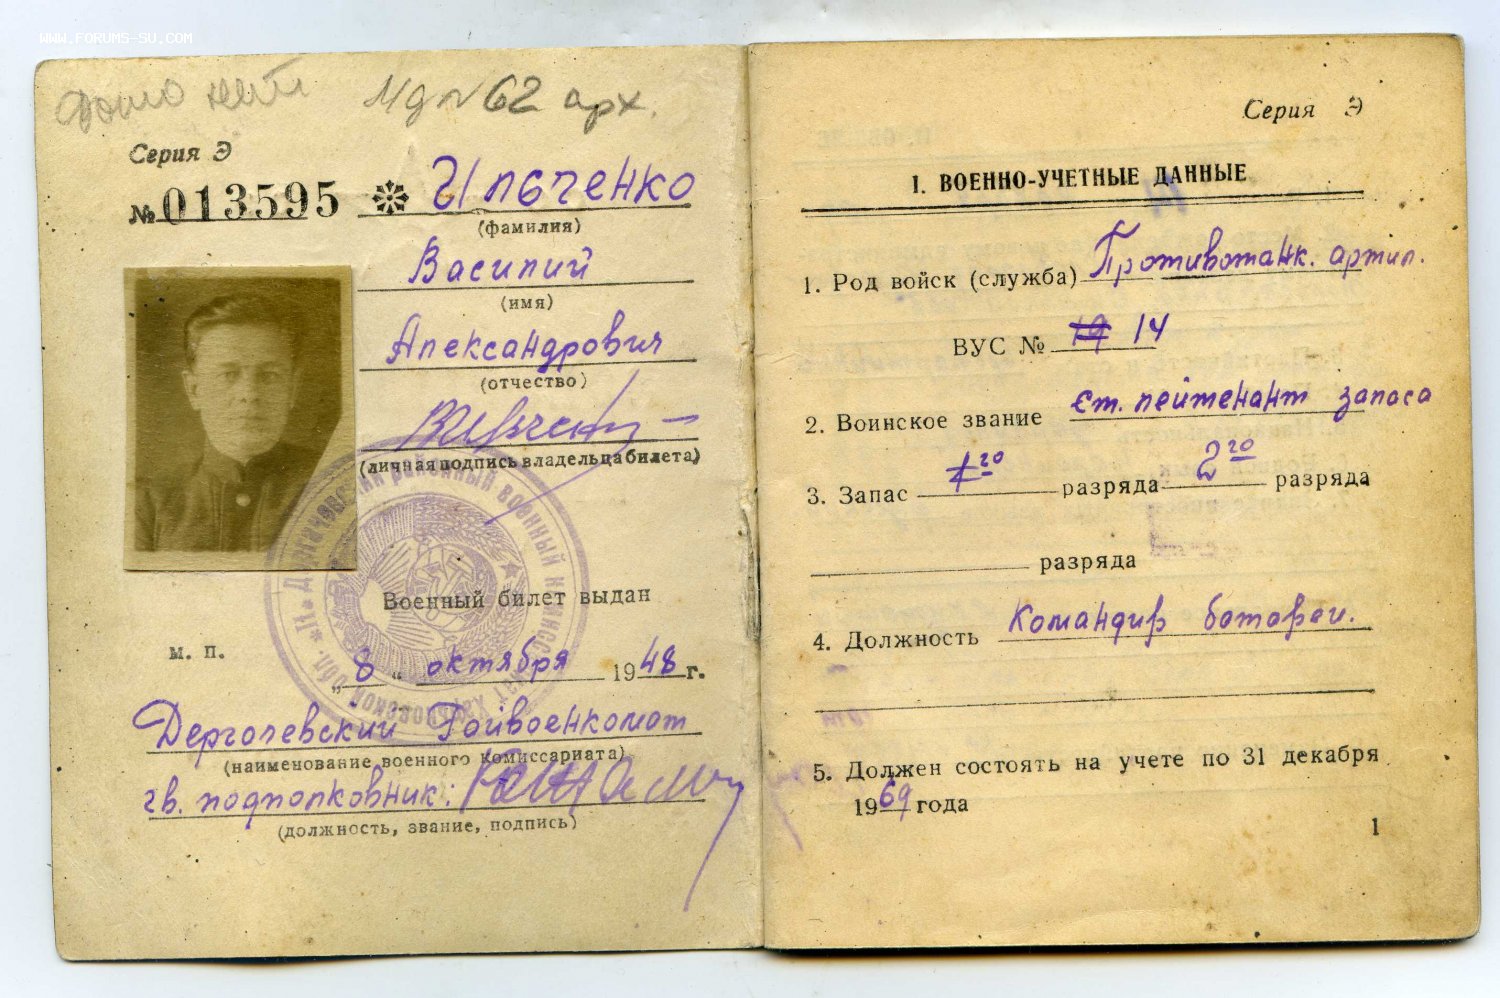 WWW.FORUMS-SU.COM
фото нет
62 арх.
Серия Э
№ 013595 Ильченко
(фамилия)
Василий
(имя)
Александрович
(отчество)
(личная подпись владельца билета)
Военный билет выдан
М. П.
„8“ октября 1948 г.
Дергачевский Райвоенкомат
(наименование военного комиссариата)
гв. подполковник:
(должность, звание, подпись)
районный военный
Харьковской обл.
Серия Э
I. ВОЕННО-УЧЕТНЫЕ ДАННЫЕ
1. Род войск (служба) Противотанк. артил.
ВУС № 19 14
2. Воинское звание ст. лейтенант запаса
3. Запас 1го разряда 2го разряда
разряда
4. Должность Командир батареи.
5. Должен состоять на учете по 31 декабря
1969 года
1